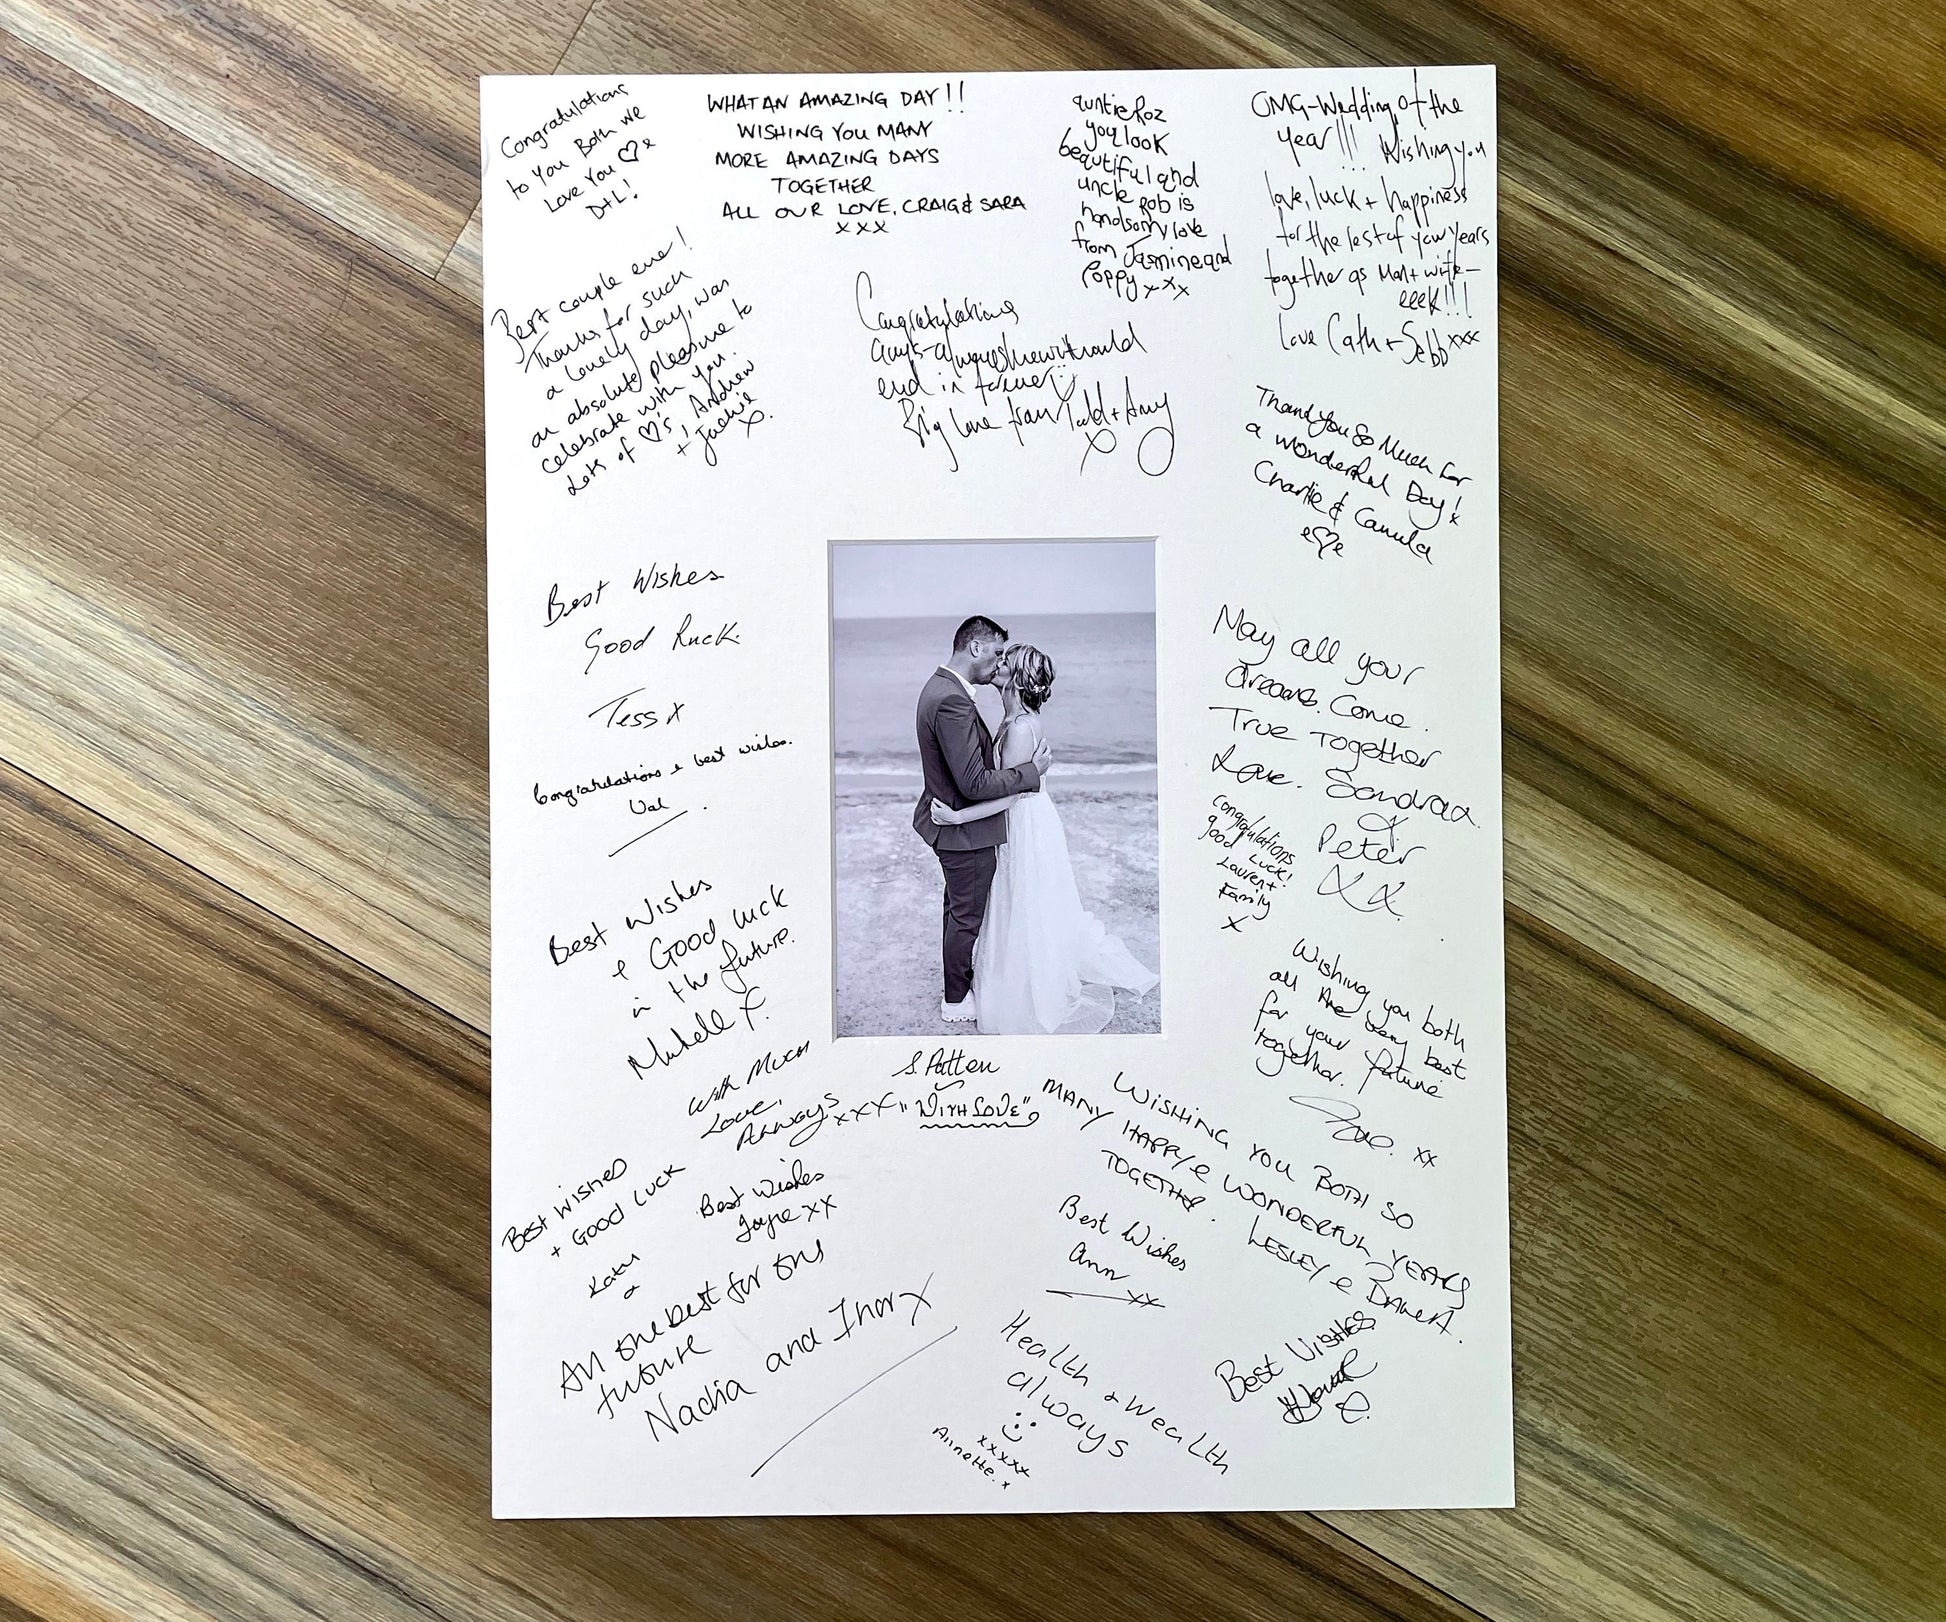 Congratulations
to You Both We
Love You
D+L!
WHAT AN AMAZING DAY!!
WISHING YOU MANY
MORE AMAZING DAYS
TOGETHER
ALL OUR LOVE, CRAIG & SARA
xxx
auntie Roz
you look
beautiful and
uncle Rob is
handsomy love
from Jasmine and
Poppy xxx
OMG-Wedding of the
year!!! Wishing you
love, luck + happiness
for the rest of your years
together as Man + wife-
eeek!!!
Love Cath + Sebb xxx
Best couple ever!
Thanks for such
a lovely day, was
an absolute pleasure to
celebrate with you.
Lots of ♡'s! Andrew
+ Jackie
x.
Congratulations
Guys - always knew it would
end in forever
Big love from Todd + Amy
x
Thank you So Much for
a wonderful Day! x
Charlie & Camula
Best Wishes
Good Luck.
Tess x
Congratulations & best wishes.
Val
May all your
dreams. Come.
True Together
Love. Sandra
&
Peter
XX.
Congratulations
good Luck!
Lauren +
Family
X
Best Wishes
& Good luck
in the future.
Michelle X.
Wishing you both
all the very best
for your future
together.
xx
With Much
Love,
xxx
S. Patten
"WITH LOVE"
WISHING YOU BOTH SO
MANY HAPPY & WONDERFUL YEARS
TOGETHER.
LESLEY &
Best Wishes
+ Good Luck
Katy
x
Best Wishes
Joyce XX
Best Wishes
Ann
xx
All the best for the
future
Nadia and Inar X
Health & Wealth
always
xxxxx
Annette. x
Best Wishes